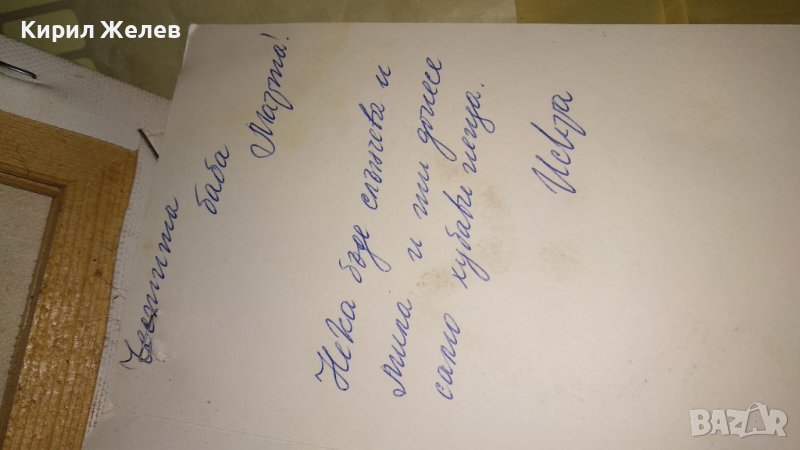 Кирил Желев
Честита
баба
Марта!
Нека бъде слънчева и
мила и ти донесе
само хубави неща.
BAZAR